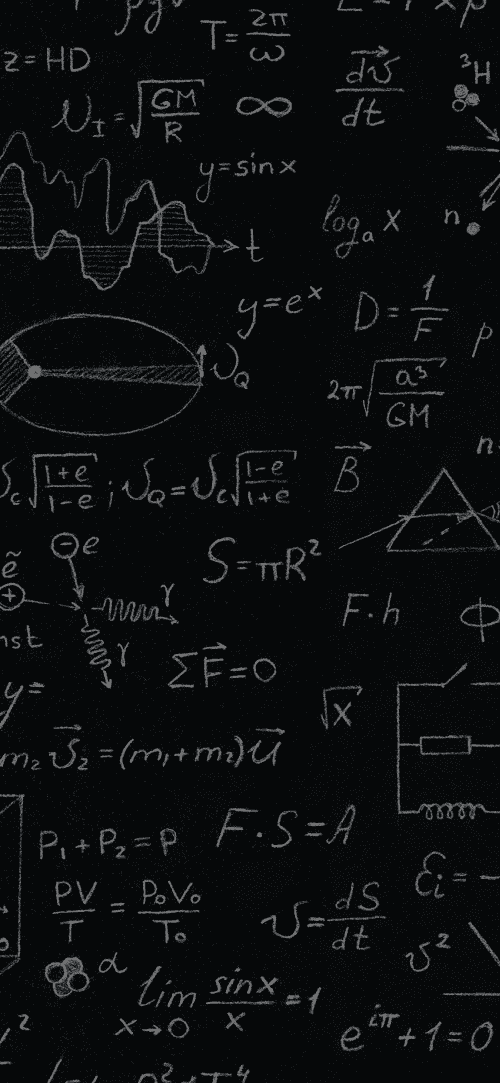 T = 2π/ω
z = HD
dv⃗/dt
³H
υ_I = √(GM/R)
∞
y = sin x
log_a x
n
t
y = e^x
D = 1/F
υ_Q
2π√(a³/GM)
B⃗
υ_c √((1+e)/(1-e)) ; υ_Q = υ_c √((1-e)/(1+e))
e
S = πR²
ẽ
γ
F·h
γ
ΣF⃗ = 0
y =
√x
m₂υ⃗₂ = (m₁+m₂)u⃗
F·S = A
P₁ + P₂ = P
ℰ_i = -
PV/T = P₀V₀/T₀
υ = dS/dt
υ²
α
lim sinx/x = 1
x→0
e^{iπ} + 1 = 0